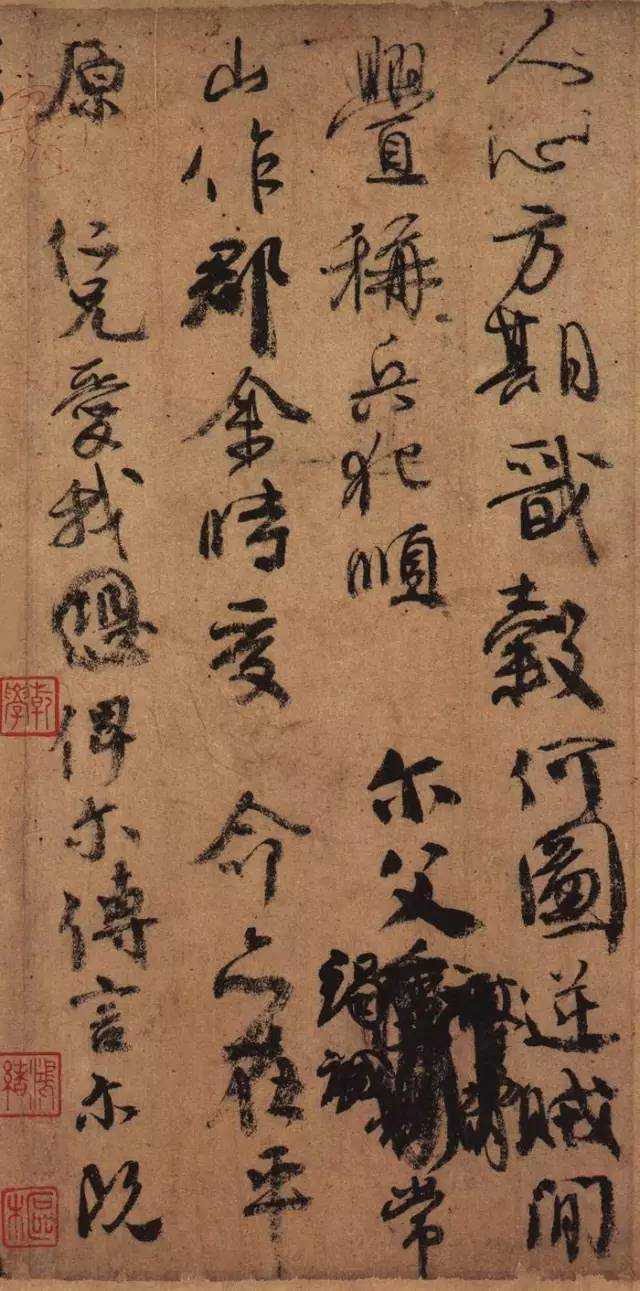 人心方期戩穀何圖逆賊閒
釁稱兵犯順 尔父竭誠常
山作郡余時受 命亦在平
原 仁兄愛我恐俾尔傳言尔既
乾學
鴻緒